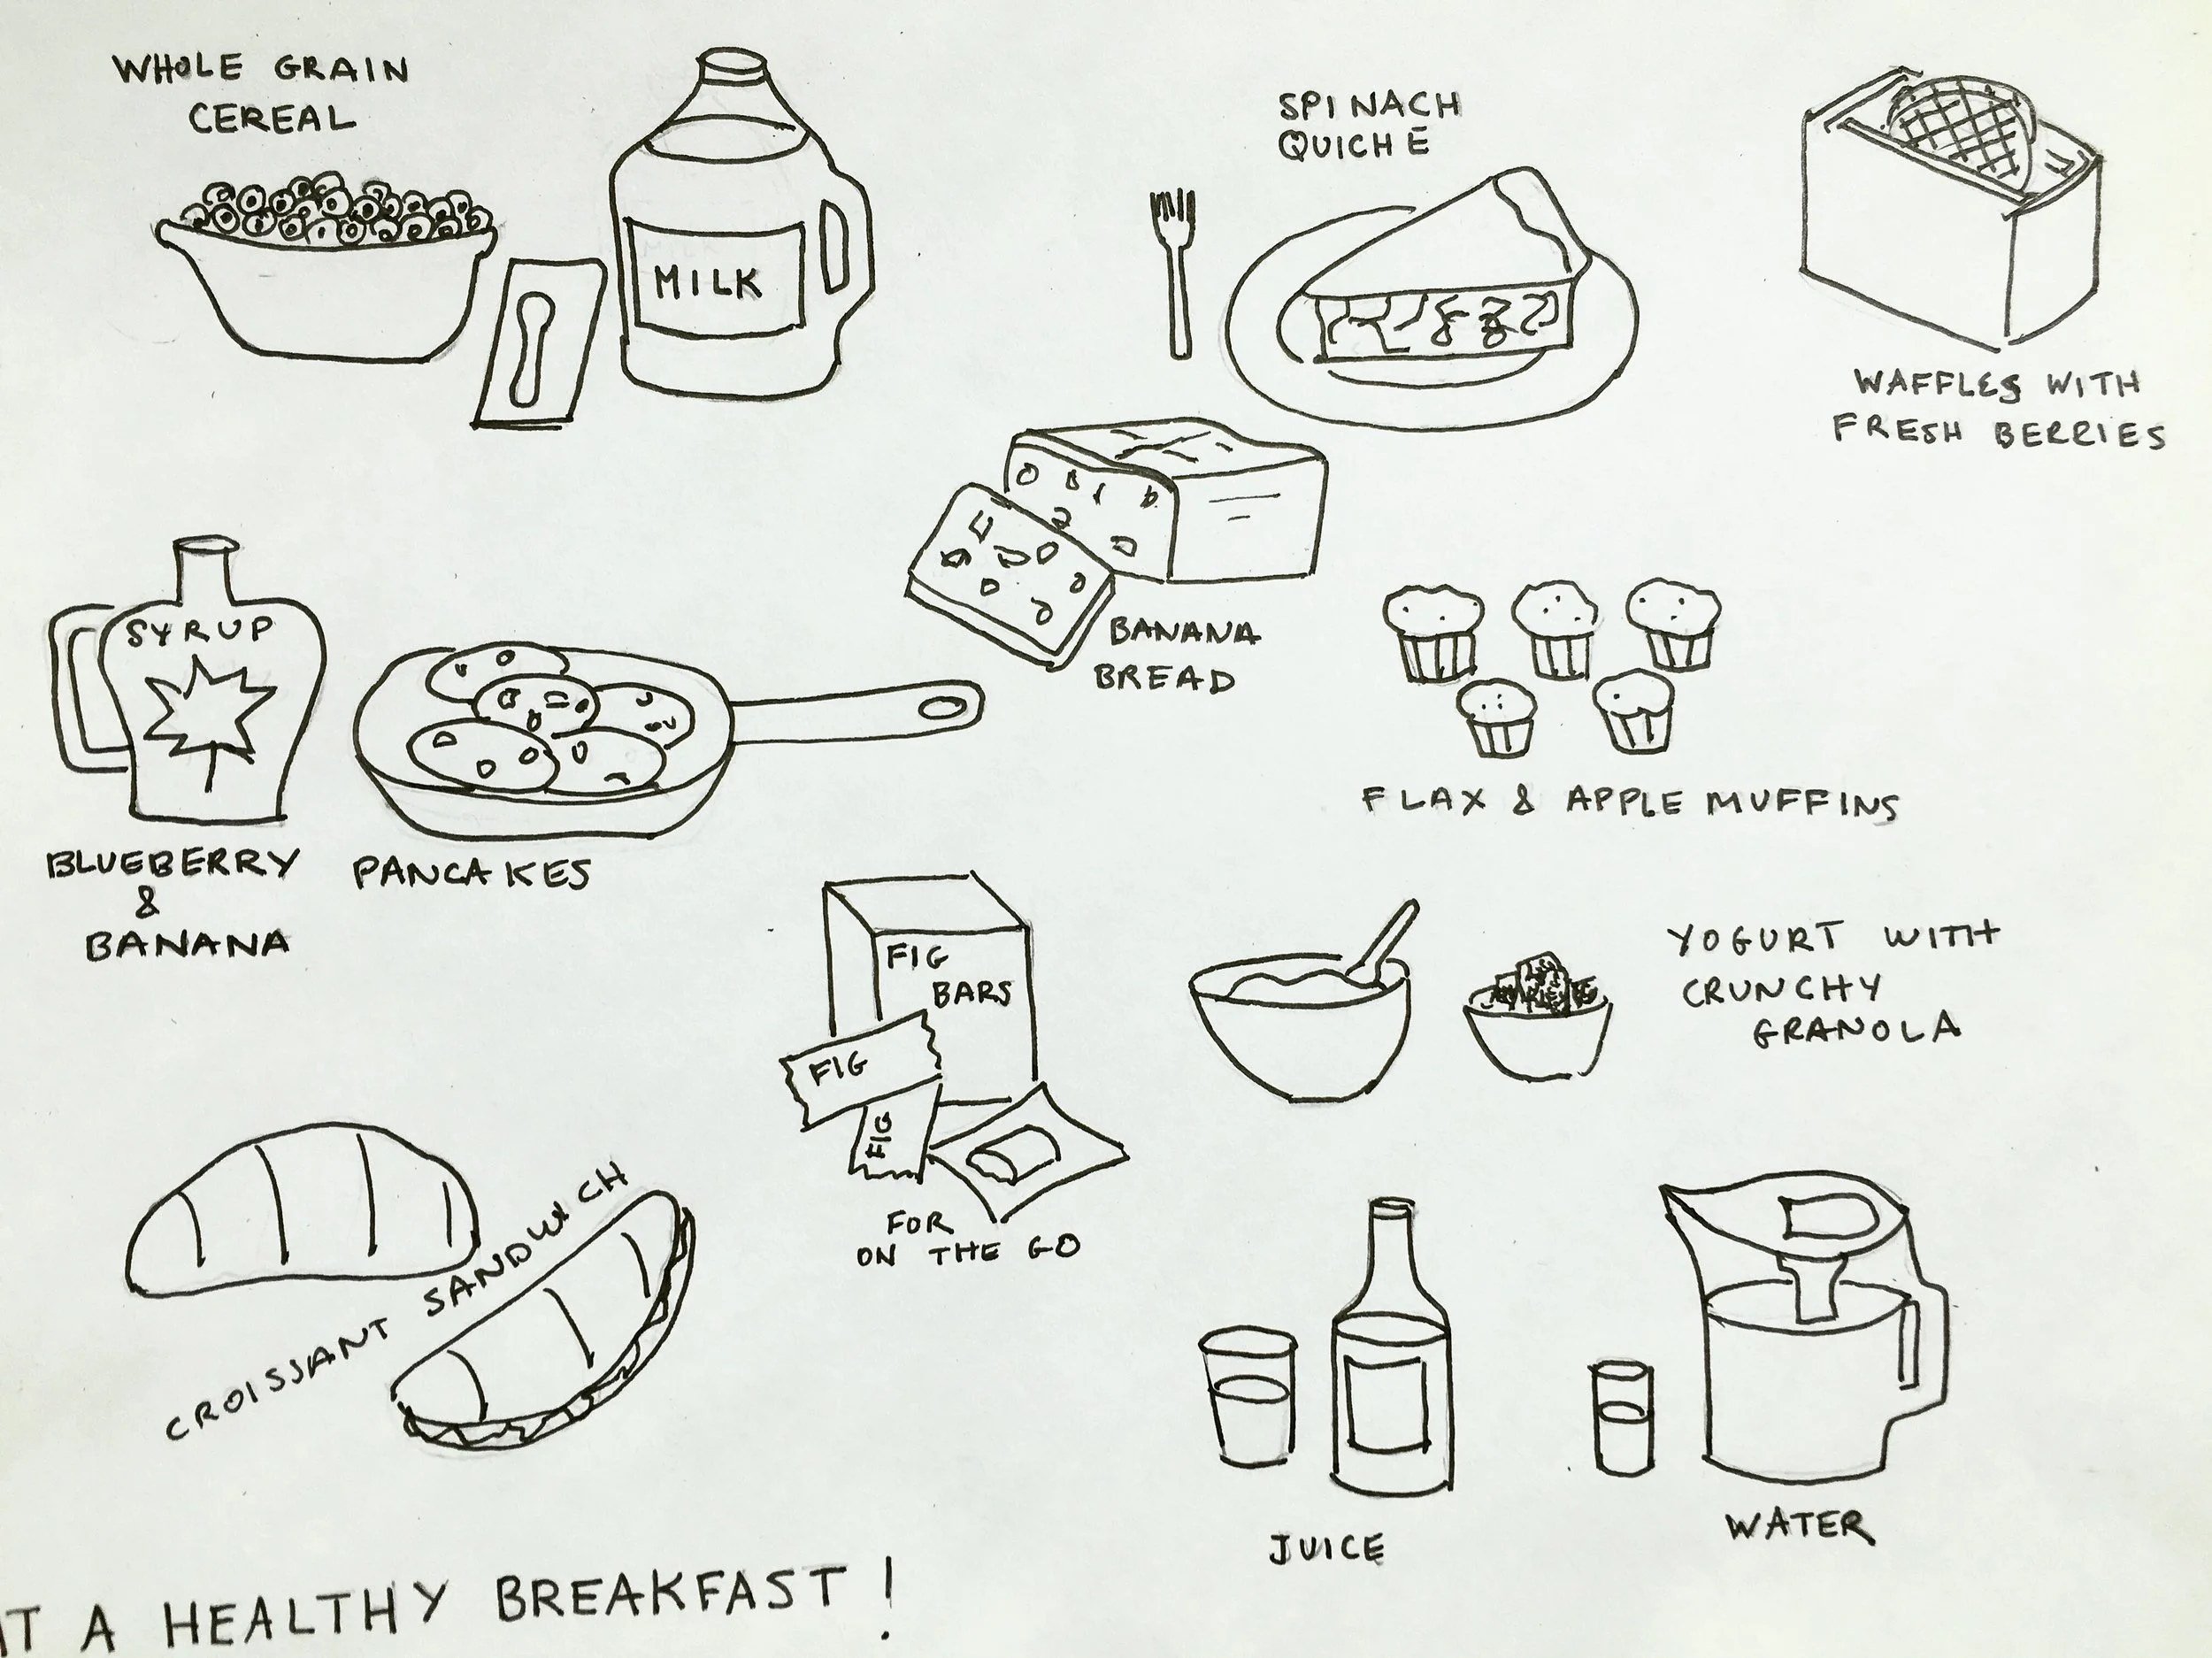 WHOLE GRAIN
CEREAL
MILK
SPINACH
QUICHE
WAFFLES WITH
FRESH BERRIES
BANANA
BREAD
SYRUP
BLUEBERRY
&
BANANA
PANCAKES
FLAX & APPLE MUFFINS
FIG
BARS
FIG
FIG
FOR
ON THE GO
YOGURT WITH
CRUNCHY
GRANOLA
CROISSANT SANDWICH
JUICE
WATER
A HEALTHY BREAKFAST!